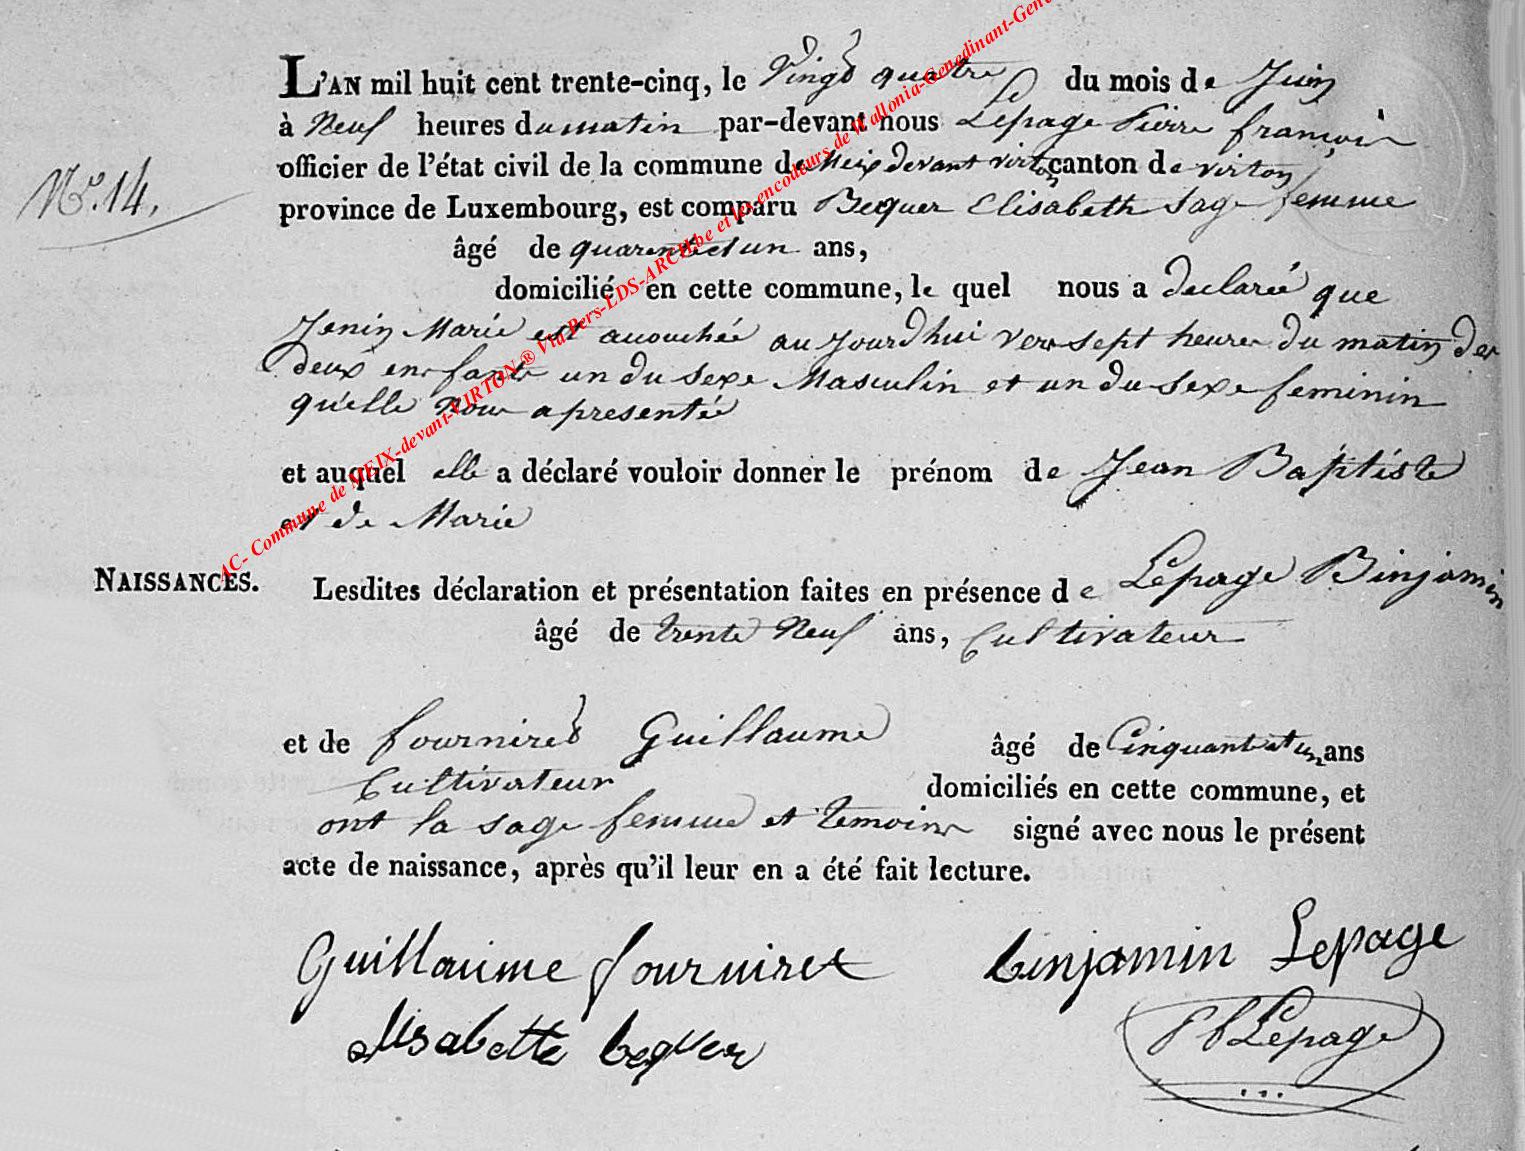 L'AN mil huit cent trente-cinq, le Vingt quatre du mois de Juin
à Neuf heures du matin par-devant nous Lepage Pierre françois
officier de l'état civil de la commune de Meix devant virton canton de virton
N.o 14.
province de Luxembourg, est comparu Bequer Elisabeth sage femme
âgé de quarente et un ans,
domicilié en cette commune, le quel nous a declareé que
Jenin Marie est acouchée aujourd'hui vers sept heures du matin des
deux enfants un du sexe Masculin et un du sexe feminin
qu'elle nous a presentée
et auquel elle a déclaré vouloir donner le prénom de Jean Baptiste
et de Marie
NAISSANCES.
Lesdites déclaration et présentation faites en présence de Lepage Binjamin
âgé de trente Neuf ans, Cultivateur
et de fourniret Guillaume âgé de Cinquante et un ans
Cultivateur domiciliés en cette commune, et
ont la sage femme et temoins signé avec nous le présent
acte de naissance, après qu'il leur en a été fait lecture.
Guillaume fourniret binjamin Lepage
elisabette bequer
Pf Lepage
AC- Commune de MEIX-devant-VIRTON ® Via Pers-LDS-ARCH.be et les encodeurs de Wallonia-Genedinant-Gen